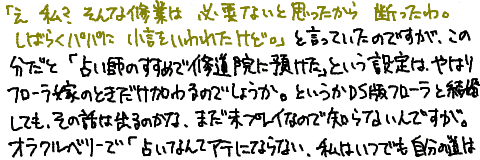 「え 私？ そんな修業は 必要ないと思ったから 断ったわ。
しばらくパパに 小言をいわれたけど。」と言っていたのですが、この
分だと「占い師のすすめで修道院に預けた」という設定は、やはり
フローラ嫁のときだけ加わるのでしょうか。というかDS版フローラと結婚
しても、その話は出るのかな、まだ未プレイなので知らないんですが。
オラクルベリーで「占いなんてアテにならない、私はいつでも自分の道は